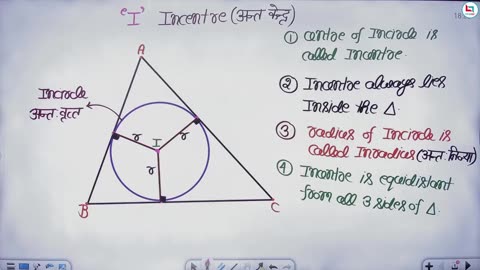 'I' Incentre (अन्त केन्द्र)
① centre of Incircle is
called Incentre.
② Incentre always lies
Inside the Δ.
③ radius of Incircle is
called Inradius (अन्तः त्रिज्या)
④ Incentre is equidistant
from all 3 sides of Δ.
Incircle
अन्तः वृत्त
A
r
r
I
r
B
C